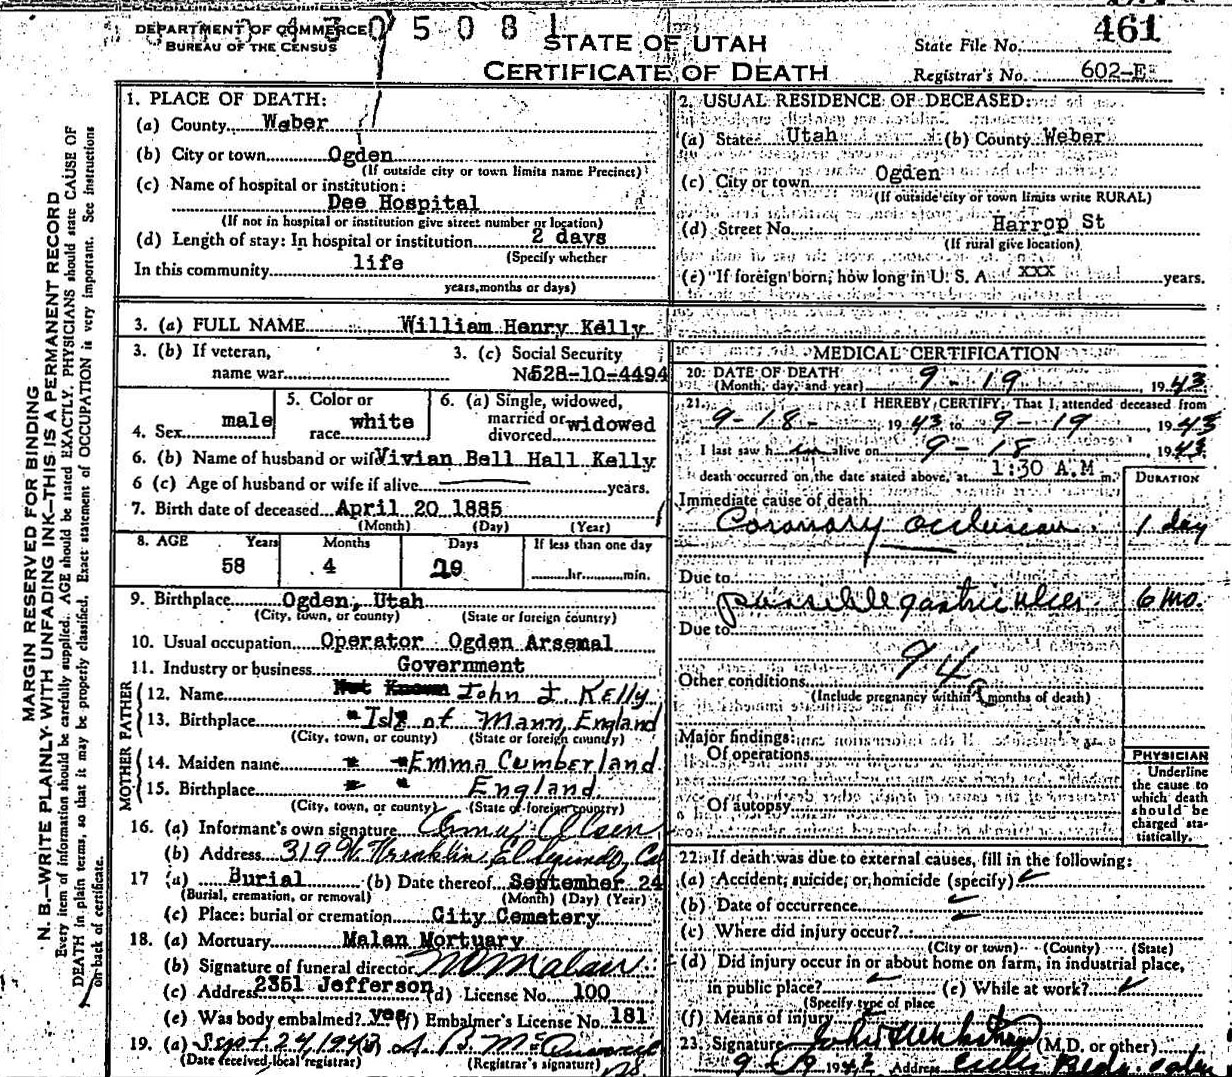 DEPARTMENT OF COMMERCE
BUREAU OF THE CENSUS
4305081
STATE OF UTAH
CERTIFICATE OF DEATH
State File No. 461
Registrar's No. 602-E
MARGIN RESERVED FOR BINDING
N. B.—WRITE PLAINLY WITH UNFADING INK—THIS IS A PERMANENT RECORD
Every item of information should be carefully supplied. AGE should be stated EXACTLY. PHYSICIANS should state CAUSE OF
DEATH in plain terms, so that it may be properly classified. Exact statement of OCCUPATION is very important. See instructions
on back of certificate.
1. PLACE OF DEATH:
(a) County Weber
(b) City or town Ogden
(If outside city or town limits name Precinct)
(c) Name of hospital or institution:
Dee Hospital
(If not in hospital or institution give street number or location)
(d) Length of stay: In hospital or institution 2 days
(Specify whether
In this community life
years, months or days)
2. USUAL RESIDENCE OF DECEASED:
(a) State Utah (b) County Weber
(c) City or town Ogden
(If outside city or town limits write RURAL)
(d) Street No. Harrop St
(If rural give location)
(e) If foreign born, how long in U. S. A. xxx years.
3. (a) FULL NAME William Henry Kelly
3. (b) If veteran,
name war
3. (c) Social Security
No 528-10-4494
4. Sex male
5. Color or
race white
6. (a) Single, widowed,
married or
divorced widowed
6. (b) Name of husband or wife Vivian Bell Hall Kelly
6 (c) Age of husband or wife if alive years.
7. Birth date of deceased April 20 1885
(Month) (Day) (Year)
8. AGE Years Months Days If less than one day
58 4 hr. min.
9. Birthplace Ogden, Utah
(City, town, or county) (State or foreign country)
10. Usual occupation Operator Ogden Arsenal
11. Industry or business Government
FATHER
12. Name Not Known John J. Kelly
13. Birthplace " Isle of Mann, England
(City, town, or county) (State or foreign country)
MOTHER
14. Maiden name " " Emma Cumberland
15. Birthplace " " England
(City, town, or county) (State or foreign country)
16. (a) Informant's own signature Olsen
(b) Address 319 W. Franklin, El Segundo, Cal
17 (a) Burial (b) Date thereof September 24
(Burial, cremation, or removal) (Month) (Day) (Year)
(c) Place: burial or cremation City Cemetery
18. (a) Mortuary Malan Mortuary
(b) Signature of funeral director Malan
(c) Address 2351 Jefferson (d) License No. 100
(e) Was body embalmed? yes (f) Embalmer's License No. 181
19. (a) Sept. 24, 1943
(Date received local registrar) (Registrar's signature)
MEDICAL CERTIFICATION
20. DATE OF DEATH
(Month, day, and year) 9 - 19, 1943
21. I HEREBY CERTIFY, That I attended deceased from
9-18- 1943 to 9-19, 1943
I last saw h im alive on 9-18 1943
death occurred on the date stated above, at 1:30 A.M m.
DURATION
Immediate cause of death
Coronary occlusion 1 day
Due to
possible gastric ulcer 6 mo.
Due to
94a
Other conditions
(Include pregnancy within 3 months of death)
Major findings:
Of operations
Of autopsy
PHYSICIAN
Underline
the cause to
which death
should be
charged sta-
tistically.
22. If death was due to external causes, fill in the following:
(a) Accident, suicide, or homicide (specify)
(b) Date of occurrence
(c) Where did injury occur?
(City or town) (County) (State)
(d) Did injury occur in or about home on farm, in industrial place,
in public place? (e) While at work?
(Specify type of place
(f) Means of injury
23. Signature (M.D. or other)
Address